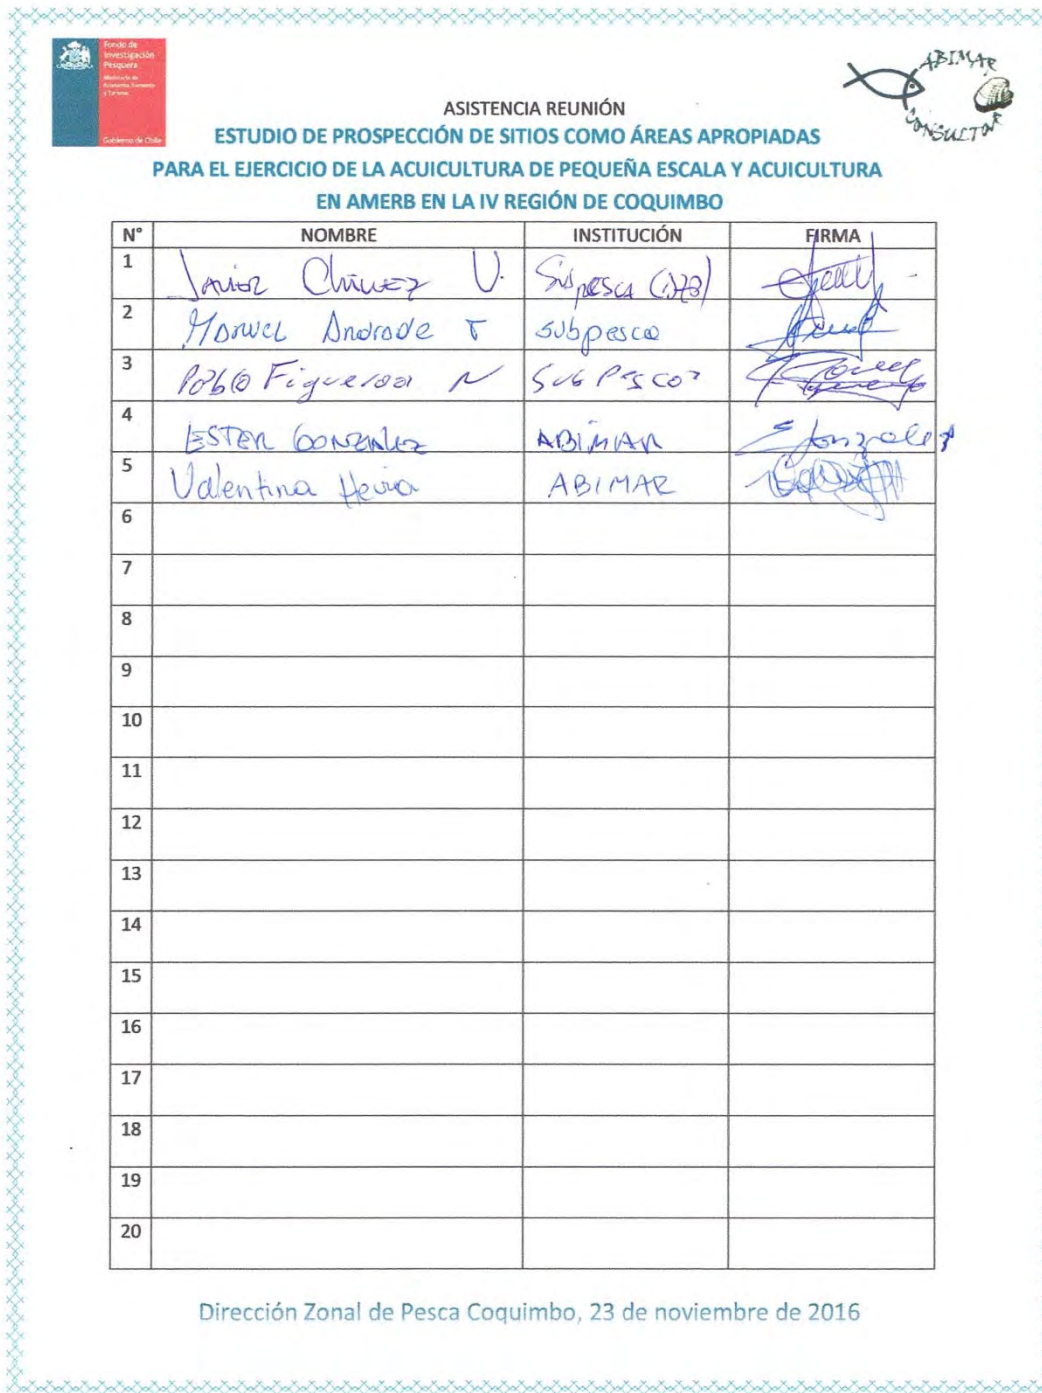 Fondo de
Investigación
Pesquera
Ministerio de
Economía, Fomento
y Turismo
Gobierno de Chile
ABIMAR
CONSULTOR
ASISTENCIA REUNIÓN
ESTUDIO DE PROSPECCIÓN DE SITIOS COMO ÁREAS APROPIADAS
PARA EL EJERCICIO DE LA ACUICULTURA DE PEQUEÑA ESCALA Y ACUICULTURA
EN AMERB EN LA IV REGIÓN DE COQUIMBO
N° NOMBRE INSTITUCIÓN FIRMA
1 Javier Chávez V. Subpesca
2 Manuel Andrade T Subpesca
3 Pablo Figueroa N Subpesca
4 ESTER GONZALEZ ABIMAR EGonzalez
5 Valentina Hevia ABIMAR
6
7
8
9
10
11
12
13
14
15
16
17
18
19
20
Dirección Zonal de Pesca Coquimbo, 23 de noviembre de 2016